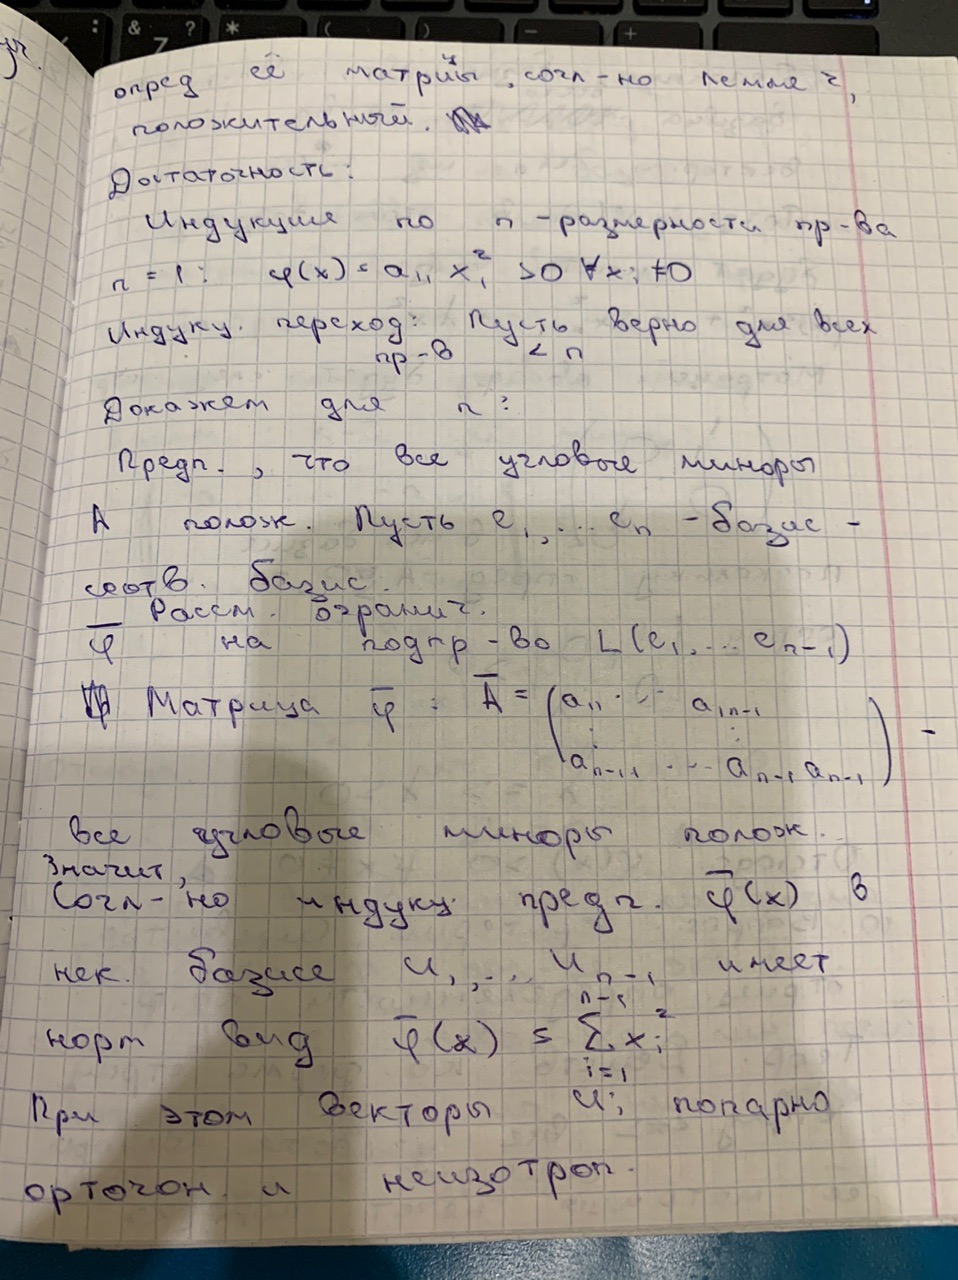 опред её матрицы, согл-но лемме 4,
положительный.
Достаточность:
Индукция по n - размерности пр-ва
n = 1: φ(x) = a₁₁ x₁² > 0 ∀xᵢ ≠ 0
Индукц. переход: Пусть верно для всех
пр-в < n
Докажем для n:
Предп., что все угловые миноры
A полож. Пусть e₁, ... eₙ - базис -
соотв. базис.
Рассм. огранич.
φ̅ на подпр-во L(e₁, ... eₙ₋₁)
Матрица φ̅ : A̅ = (a₁₁ ... a₁ₙ₋₁
⋮ ⋮
aₙ₋₁₁ ... aₙ₋₁ aₙ₋₁) -
все угловые миноры полож.
Значит,
Согл-но индукц. предп. φ̅(x) в
нек. базисе u₁, ... uₙ₋₁ имеет
норм вид φ̅(x) = ∑ᵢ₌₁ⁿ⁻¹ xᵢ²
При этом векторы uᵢ попарно
ортогон. и неизотроп.